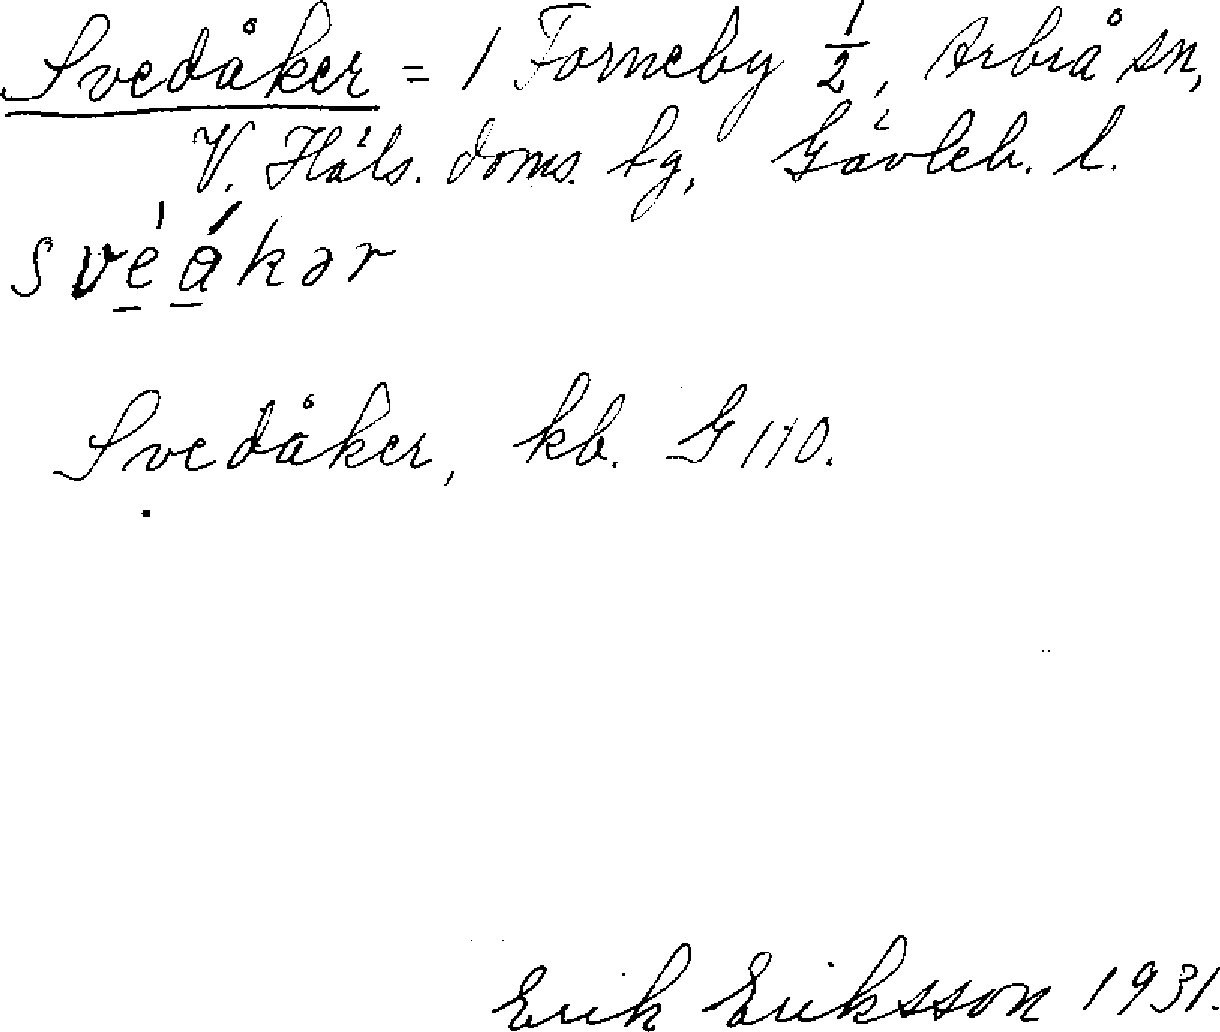 Svedåker = 1 Forneby 1/2, Arbrå sn,
V. Häls. doms. tg, Gävleb. l.
své̱á̱kər
Svedåker, kb. G 110.
Erik Eriksson 1931.